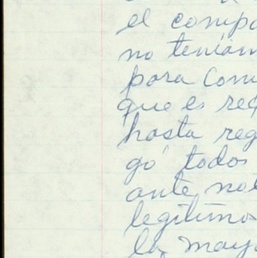 el compa
no tenían
para com
que es req
hasta reg
gó todos
ante not
legítimos
la mayo